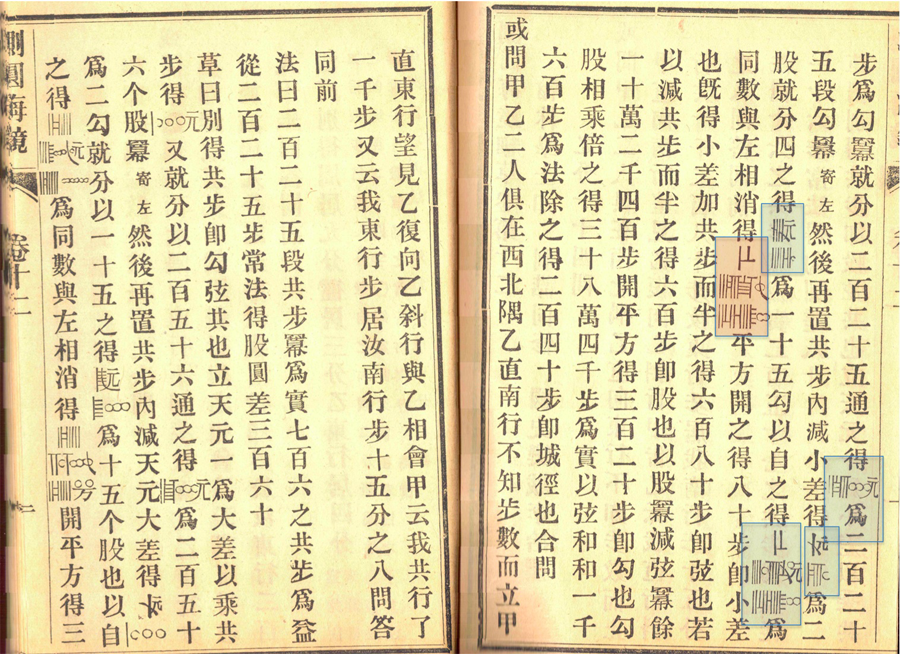 步爲勾冪就分以二百二十五通之得元爲二百二十
五段勾冪寄左然後再置共步內減小差得爲二
股就分四之得元爲一十五勾以自之得元爲
同數與左相消得平方開之得八十步卽小差
也旣得小差加共步而半之得六百八十步卽弦也若
以減共步而半之得六百步卽股也以股冪減弦冪餘
一十萬二千四百步開平方得三百二十步卽勾也勾
股相乘倍之得三十八萬四千步爲實以弦和和一千
六百步爲法除之得二百四十步卽城徑也合問
或問甲乙二人俱在西北隅乙直南行不知步數而立甲
直東行望見乙復向乙斜行與乙相會甲云我共行了
一千步又云我東行步居汝南行步十五分之八問答
同前
法曰二百二十五段共步冪爲實七百六之共步爲益
從二百二十五步常法得股圓差三百六十
草曰別得共步卽勾弦共也立天元一爲大差以乘共
步得|〇〇〇元又就分以二百五十六通之得元爲二百五十
六个股冪寄左然後再置共步內減天元大差得|〇〇〇
爲二勾就分以一十五之得元爲十五个股也以自
之得元爲同數與左相消得開平方得三
測圓海鏡 卷十二 二